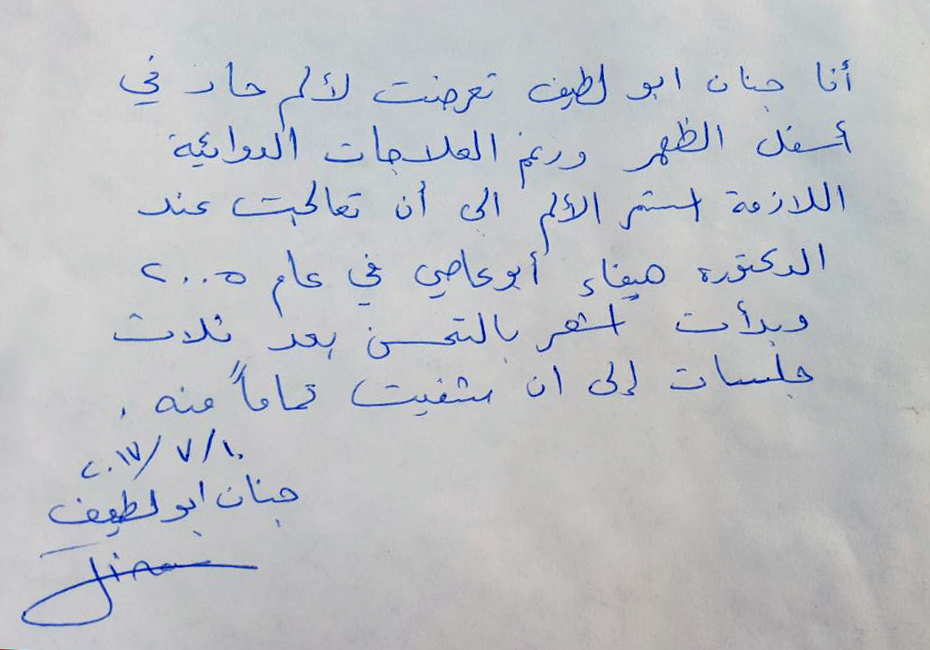 أنا جنان ابو لطيف تعرضت لألم حاد في
أسفل الظهر ورغم العلاجات الدوائية
اللازمة استمر الألم الى أن تعالجت عند
الدكتورة هيفاء أبوعاصي في عام ٢٠٠٥
وبدأت اشعر بالتحسن بعد ثلاث
جلسات إلى ان شفيت تماماً منه .
٢٠١٧/٧/١٠
جنان ابو لطيف
Jinan